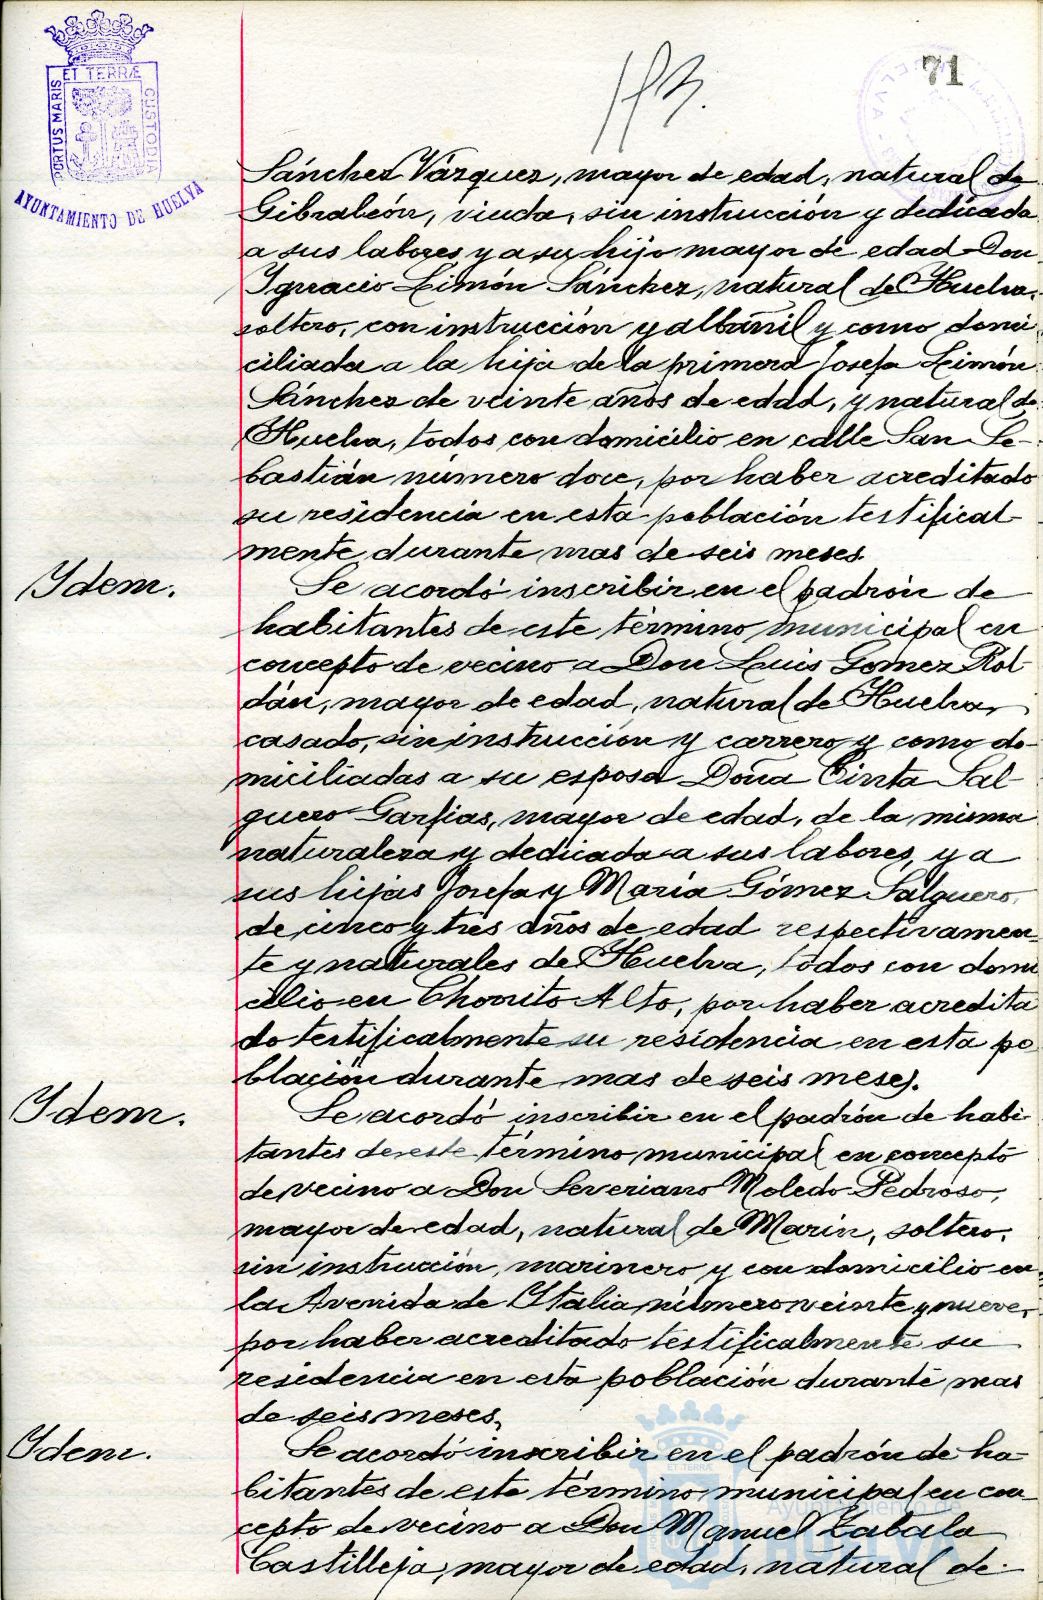 ET TERRÆ
PORTUS MARIS
CUSTODIA
AYUNTAMIENTO DE HUELVA
71
Sánchez Vázquez, mayor de edad, natural de
Gibraleón, viuda, sin instrucción y dedicada
a sus labores y a su hijo mayor de edad Don
Ignacio Limón Sánchez, natural de Huelva,
soltero, con instrucción y albañil y como domi-
ciliada a la hija de la primera Josefa Limón
Sánchez de veinte años de edad, y natural de
Huelva, todos con domicilio en calle San Se-
bastián número doce, por haber acreditado
su residencia en esta población testifical-
mente durante mas de seis meses.
Idem. Se acordó inscribir en el padrón de
habitantes de este término municipal en
concepto de vecino a Don Luis Gomez Rol-
dán, mayor de edad, natural de Huelva,
casado, sin instrucción y carrero y como do-
miciliadas a su esposa Doña Cinta Sal-
guero Garfias, mayor de edad, de la misma
naturaleza y dedicada a sus labores, y a
sus hijas Josefa y María Gómez Salguero,
de cinco y tres años de edad respectivamen-
te y naturales de Huelva, todos con domi
cilio en Chorrito Alto, por haber acredita
do testificalmente su residencia en esta po
blación durante mas de seis meses.
Idem. Se acordó inscribir en el padrón de habi-
tantes de este término municipal en concepto
de vecino a Don Severiano Moledo Pedroso,
mayor de edad, natural de Marín, soltero,
sin instrucción, marinero y con domicilio en
la Avenida de Italia número veinte y nueve,
por haber acreditado testificalmente su
residencia en esta población durante mas
de seis meses.
Idem. Se acordó inscribir en el padrón de ha-
bitantes de este término municipal en con-
cepto de vecino a Don Manuel Zabala
Castilleja, mayor de edad, natural de
Ayuntamiento de
HUELVA